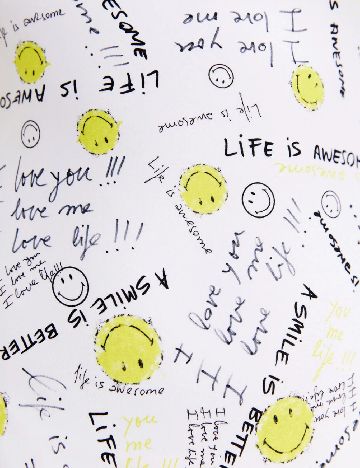 Life is awesome
AWESOME
I love me
I love you
IS AWESOME
LiFE iS AWESO
Life is awesome
LiFE iS AWESOM
awesome
I love you !!!
love me
love life !!!
Life is awesome
AWESOME
I love you
I love me
I love life!!!
I love you
I love me
I love life !!!
A SMiLE iS BETTER
A SMiLE iS BETTER
you
me
life !!!
life is awesome
Life is
LiFE
you
me
life !!!
I love you
I love me
I love life
I love you
I love me
I love life